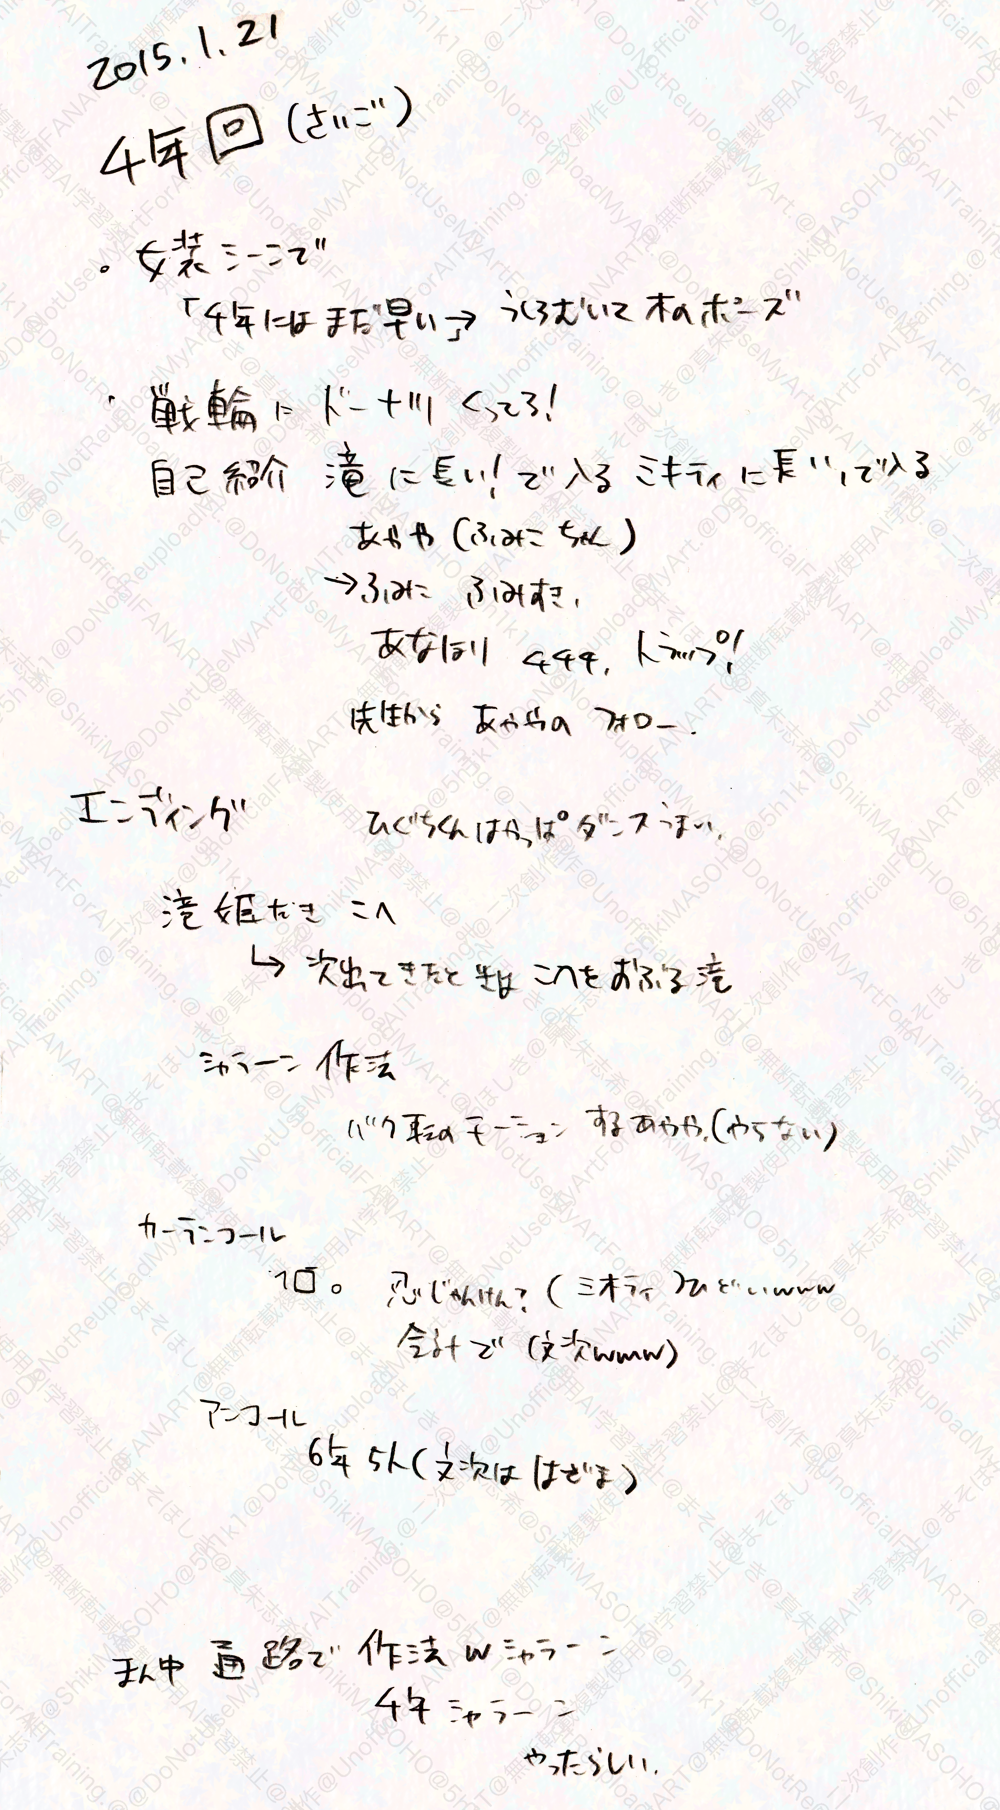 2015.1.21
4年回(さいご)
。女装シーンで
「4年にはまだ早い」→ うしろむいて木のポーズ
・戦輪に ドーナツ くってろ!
自己紹介 滝に長い!で入る ミキティに長い、で入る
あやや(ふみこちゃん)
→ふみに ふみすき、
あなほり 444, トラップ!
先生から あややの フォロー.
エンディング ひぐちくんはかっぱダンスうまい、
滝 姫だき こへ
↳ 次出てきたときは こへをおぶる滝
シャラーン 作法
バク転のモーション するあやや、(やらない)
カーテンコール
1回。 忍じゃんけん?(ミキティ)ひどいwww
会計で (文次www)
アンコール
6年 5人(文次は はざま)
まん中 通路で 作法 w シャラーン
4年 シャラーン
やったらしい.